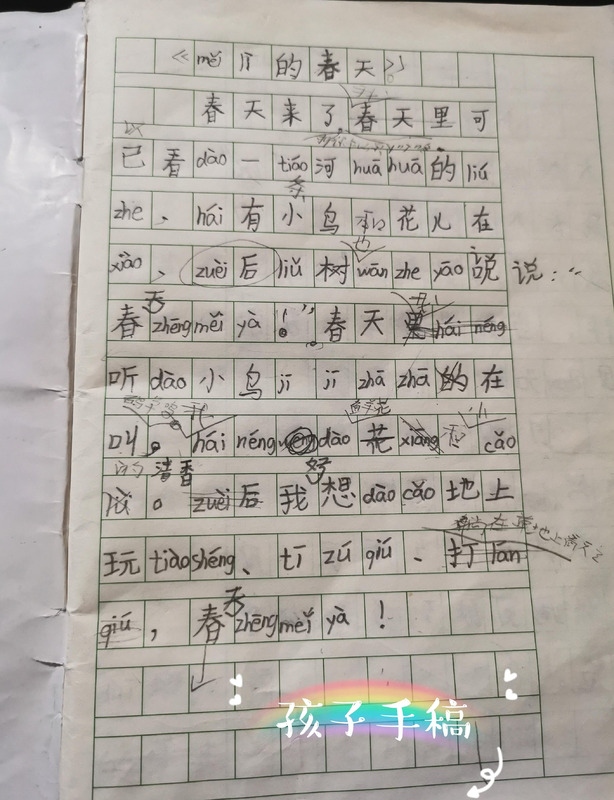 《měi lì的春天》
春天来了。春天里可
以
已看dào一tiáo河huā huā的liú
条
zhe、hái有小鸟和花儿在
也
xiào、zuèi后liǔ树wān zhe yāo说说:“
天
春zhēng měi yà!”春天里hái néng
听dào小鸟jī jī zhā zhā的在
叫。hái néng dào花xiāng和cǎo
的清香 好
lǜ。zuèi后我想dào cǎo地上
玩tiào shéng、tī zú qiú、打lán
天
qiú,春zhēng měi yà!
孩子手稿